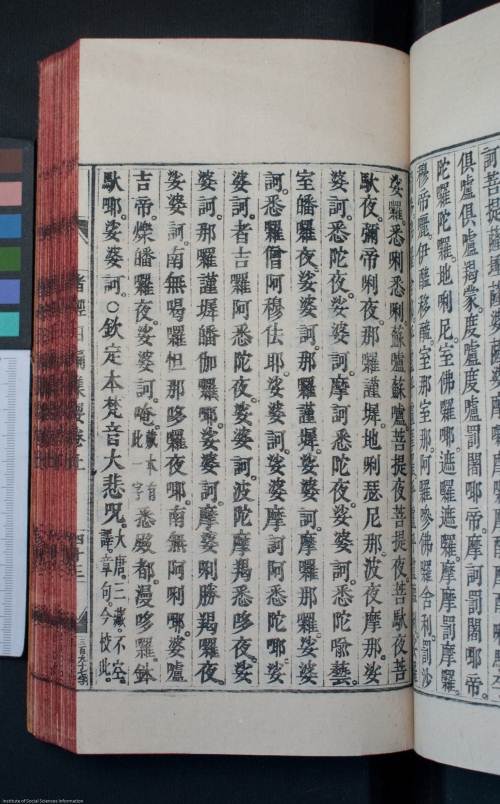 訶菩提薩
俱盧俱盧羯蒙度盧度盧罰闍耶帝
陀羅陀羅地唎尼室佛羅耶遮羅遮羅摩摩罰摩羅
穆帝麗伊醯移醯室那室那阿羅嘇佛羅舍利罰沙
娑囉悉唎悉唎蘇嚧蘇嚧菩提夜菩提夜菩馱夜菩
馱夜。彌帝唎夜。那囉謹墀。地唎瑟尼那。波夜摩那。娑
婆訶。悉陀夜。娑婆訶。摩訶悉陀夜。娑婆訶。悉陀喻藝
室皤囉夜。娑婆訶。那囉謹墀。娑婆訶。摩囉那囉。娑婆
訶。悉囉僧阿穆佉耶。娑婆訶。娑婆摩訶阿悉陀夜。娑
婆訶。者吉囉阿悉陀夜。娑婆訶。波陀摩羯悉哆夜。娑
婆訶。那囉謹墀皤伽囉耶。娑婆訶。摩婆唎勝羯囉夜。
娑婆訶。南無喝囉怛那哆囉夜耶。南無阿唎耶。婆嚧
吉帝。爍皤囉夜。娑婆訶。唵此一字藏本有悉殿都。漫哆囉。鉢
馱耶。娑婆訶。○欽定本梵音大悲呪。大唐三藏。不空。譯。章句今校此。
諸經日誦集要卷上
四十三